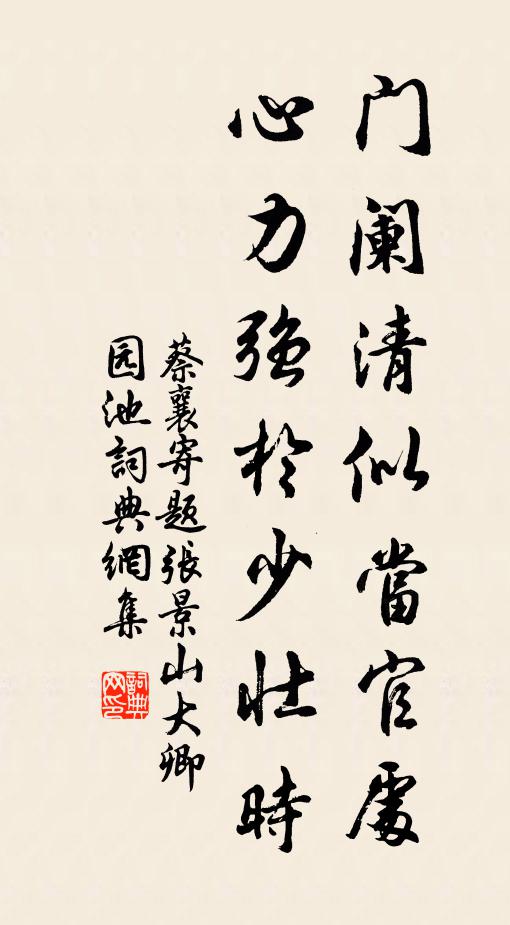 门阑清似當官處
心力强於少壮時
蔡襄寄题張景山大卿
园池詞典網集
詞典
网印